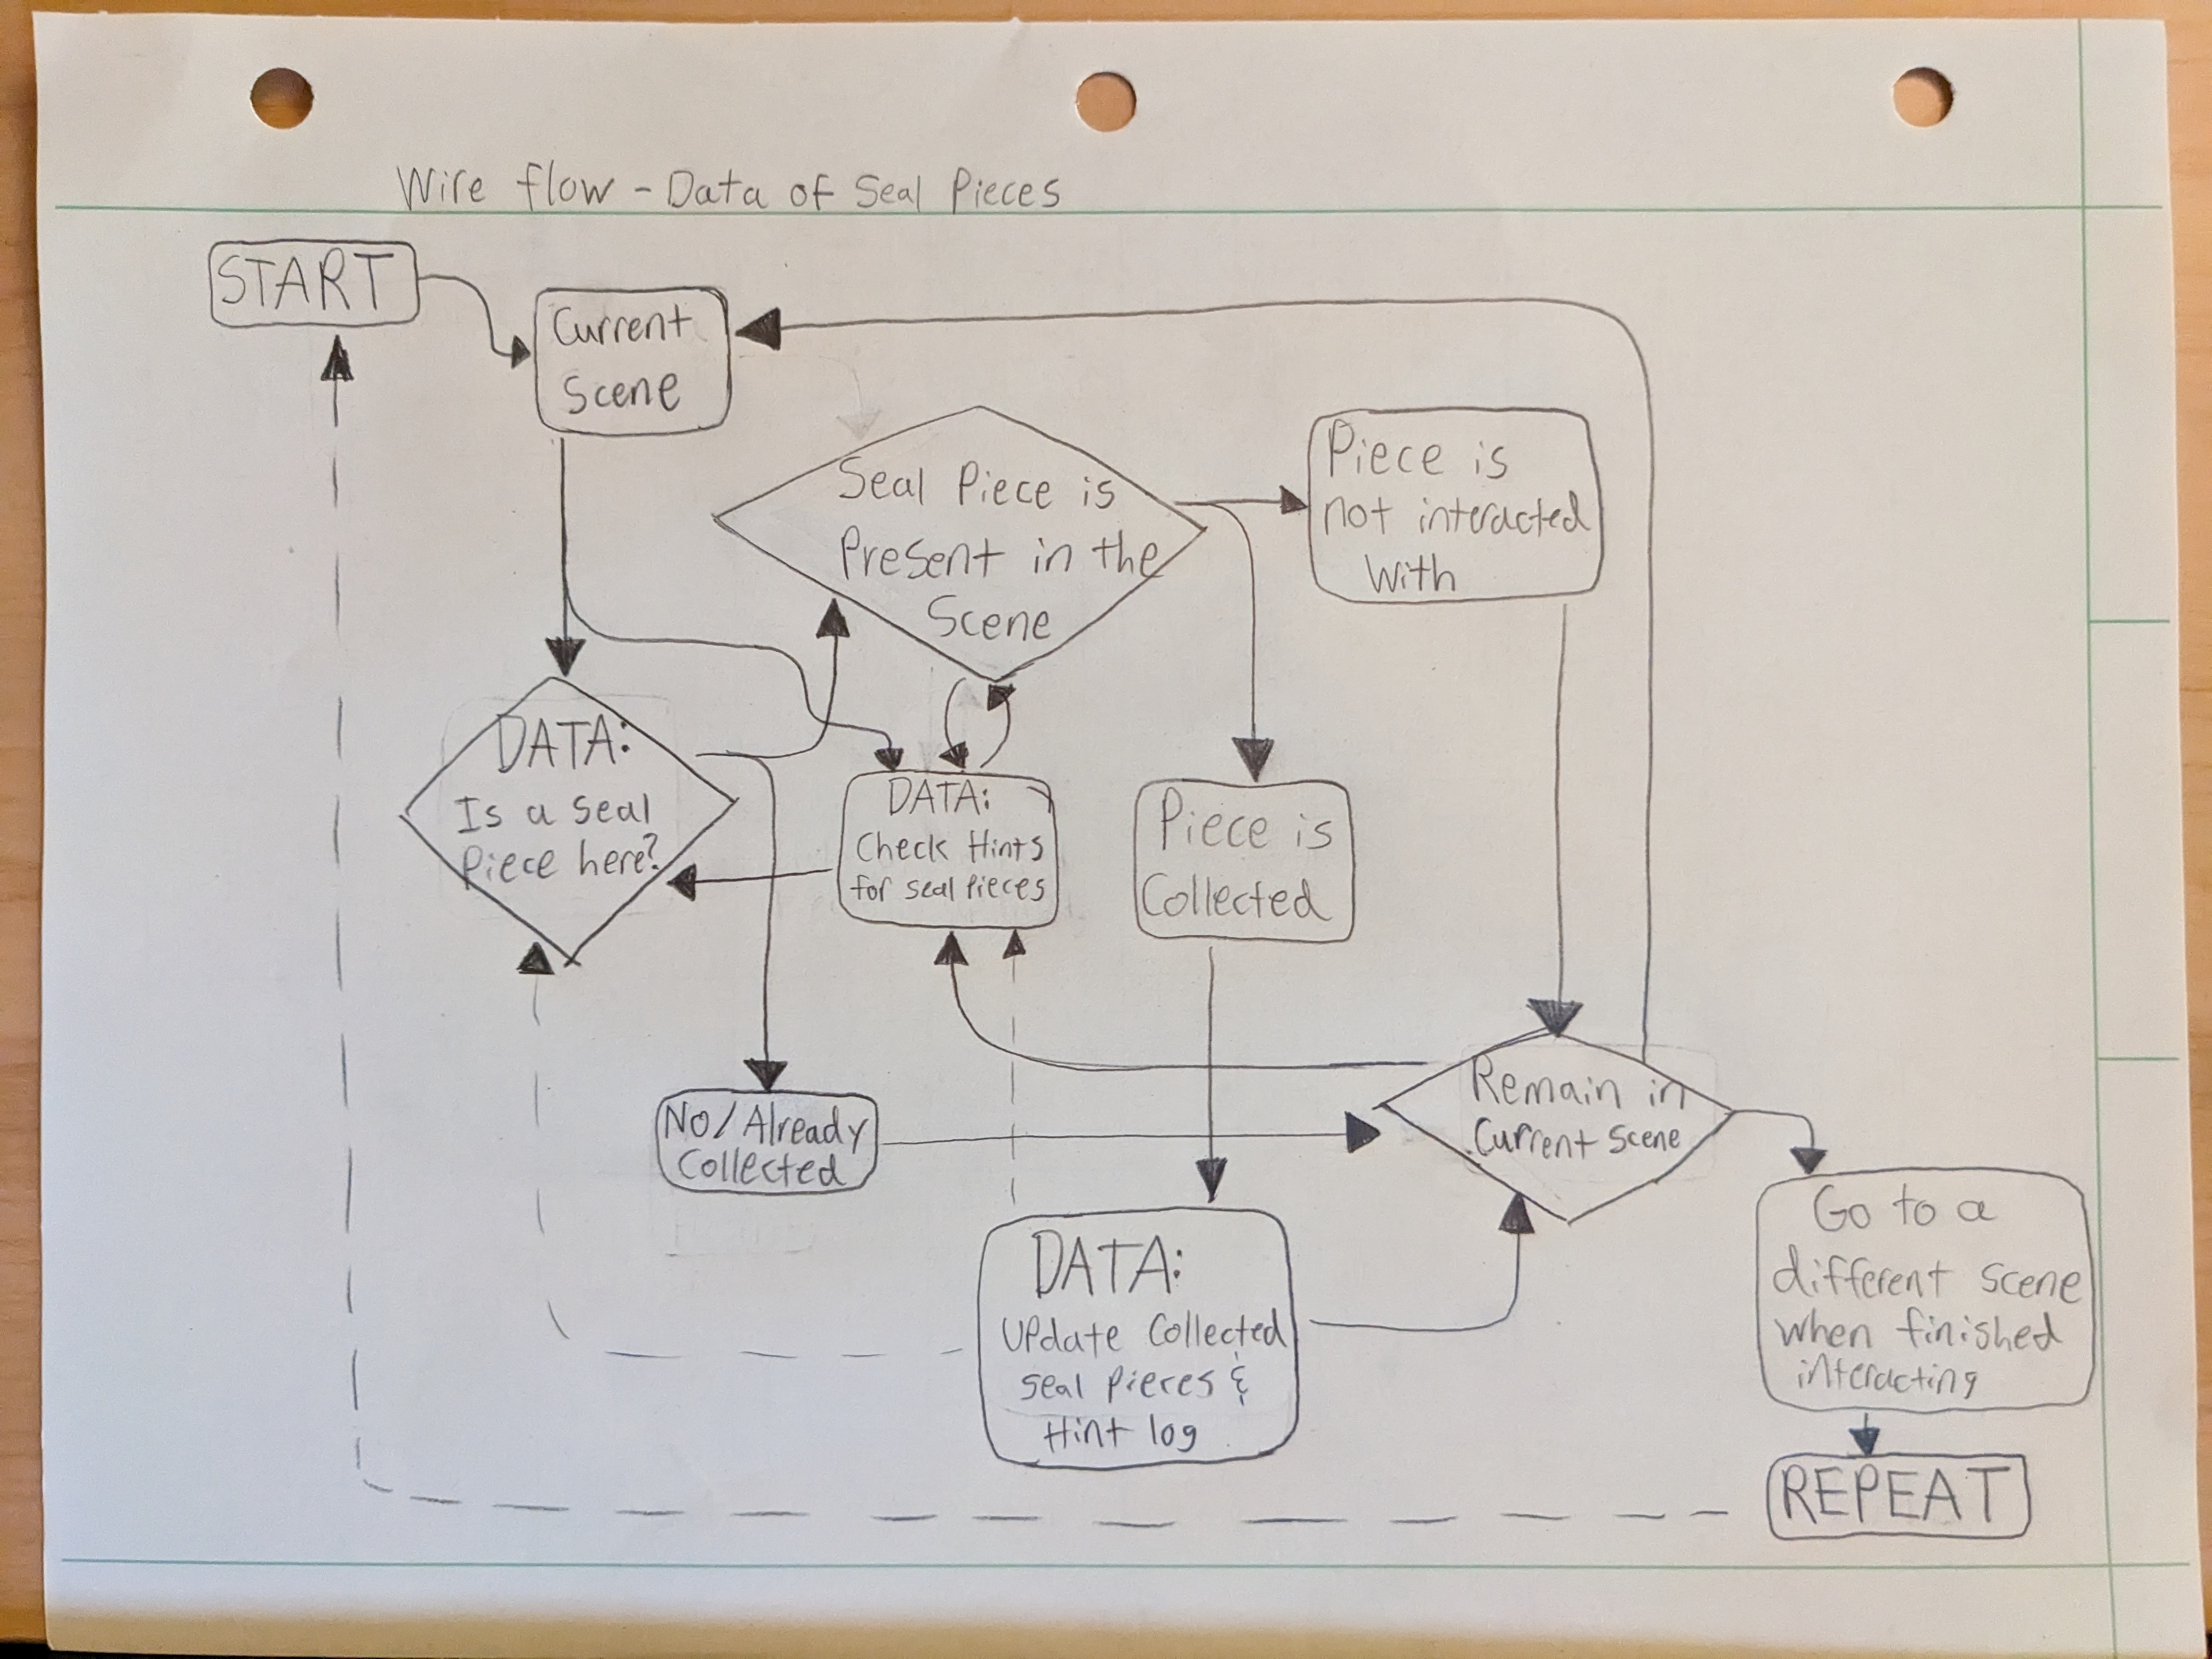 Wire flow - Data of Seal Pieces
START
Current
Scene
Seal Piece is
Present in the
Scene
Piece is
not interacted
With
DATA:
Is a seal
Piece here?
DATA:
Check Hints
for seal Pieces
Piece is
Collected
No/Already
Collected
Remain in
Current Scene
DATA:
Update Collected
seal Pieces &
Hint log
Go to a
different scene
when finished
interacting
REPEAT